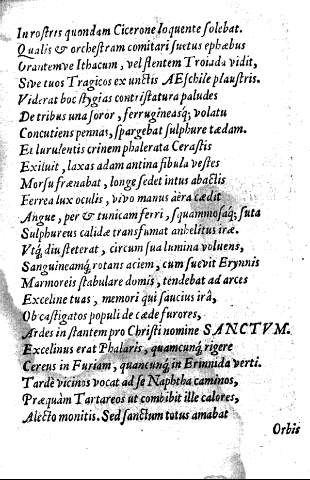 In rostris quondam Cicerone loquente solebat.
Qualis & orchestram comitari suetus ephæbus
Orantemve Ithacum, vel flentem Troiada vidit,
Sive tuos Tragicos ex unctis AEschile plaustris.
Viderat hoc stygias contristatura paludes
De tribus una soror, ferrugineasq; volatu
Concutiens pennas, spargebat sulphure tædam.
Et lurulentis crinem phalerata Cerastis
Exiluit, laxas adamantina fibula vestes
Morsu frænabat, longe sedet intus abactis
Ferrea lux oculis, vivo manus aëra cædit
Angue, per & tunicam ferri, squammosaq; suta
Sulphureus calidæ transfumat anhelitus iræ.
Utq́ diu steterat, circum sua lumina volvens,
Sanguineamq́ rotans aciem, cum suevit Erynnis
Marmoreis stabulare domis, tendebat ad arces
Exceline tuas, memori qui saucius irâ,
Ob castigatos populi de cæde furores,
Ardes in stantem pro Christi nomine SANCTVM.
Excelinus erat Phalaris, quamcunq́ rigere
Cereus in Furiam, quancunq́ in Erinnida verti.
Tardè vicinos vocat ad se Naphtha caminos,
Præquàm Tartareos ut combibit ille calores,
Alecto monitis. Sed sanctum totus amabat
Orbis